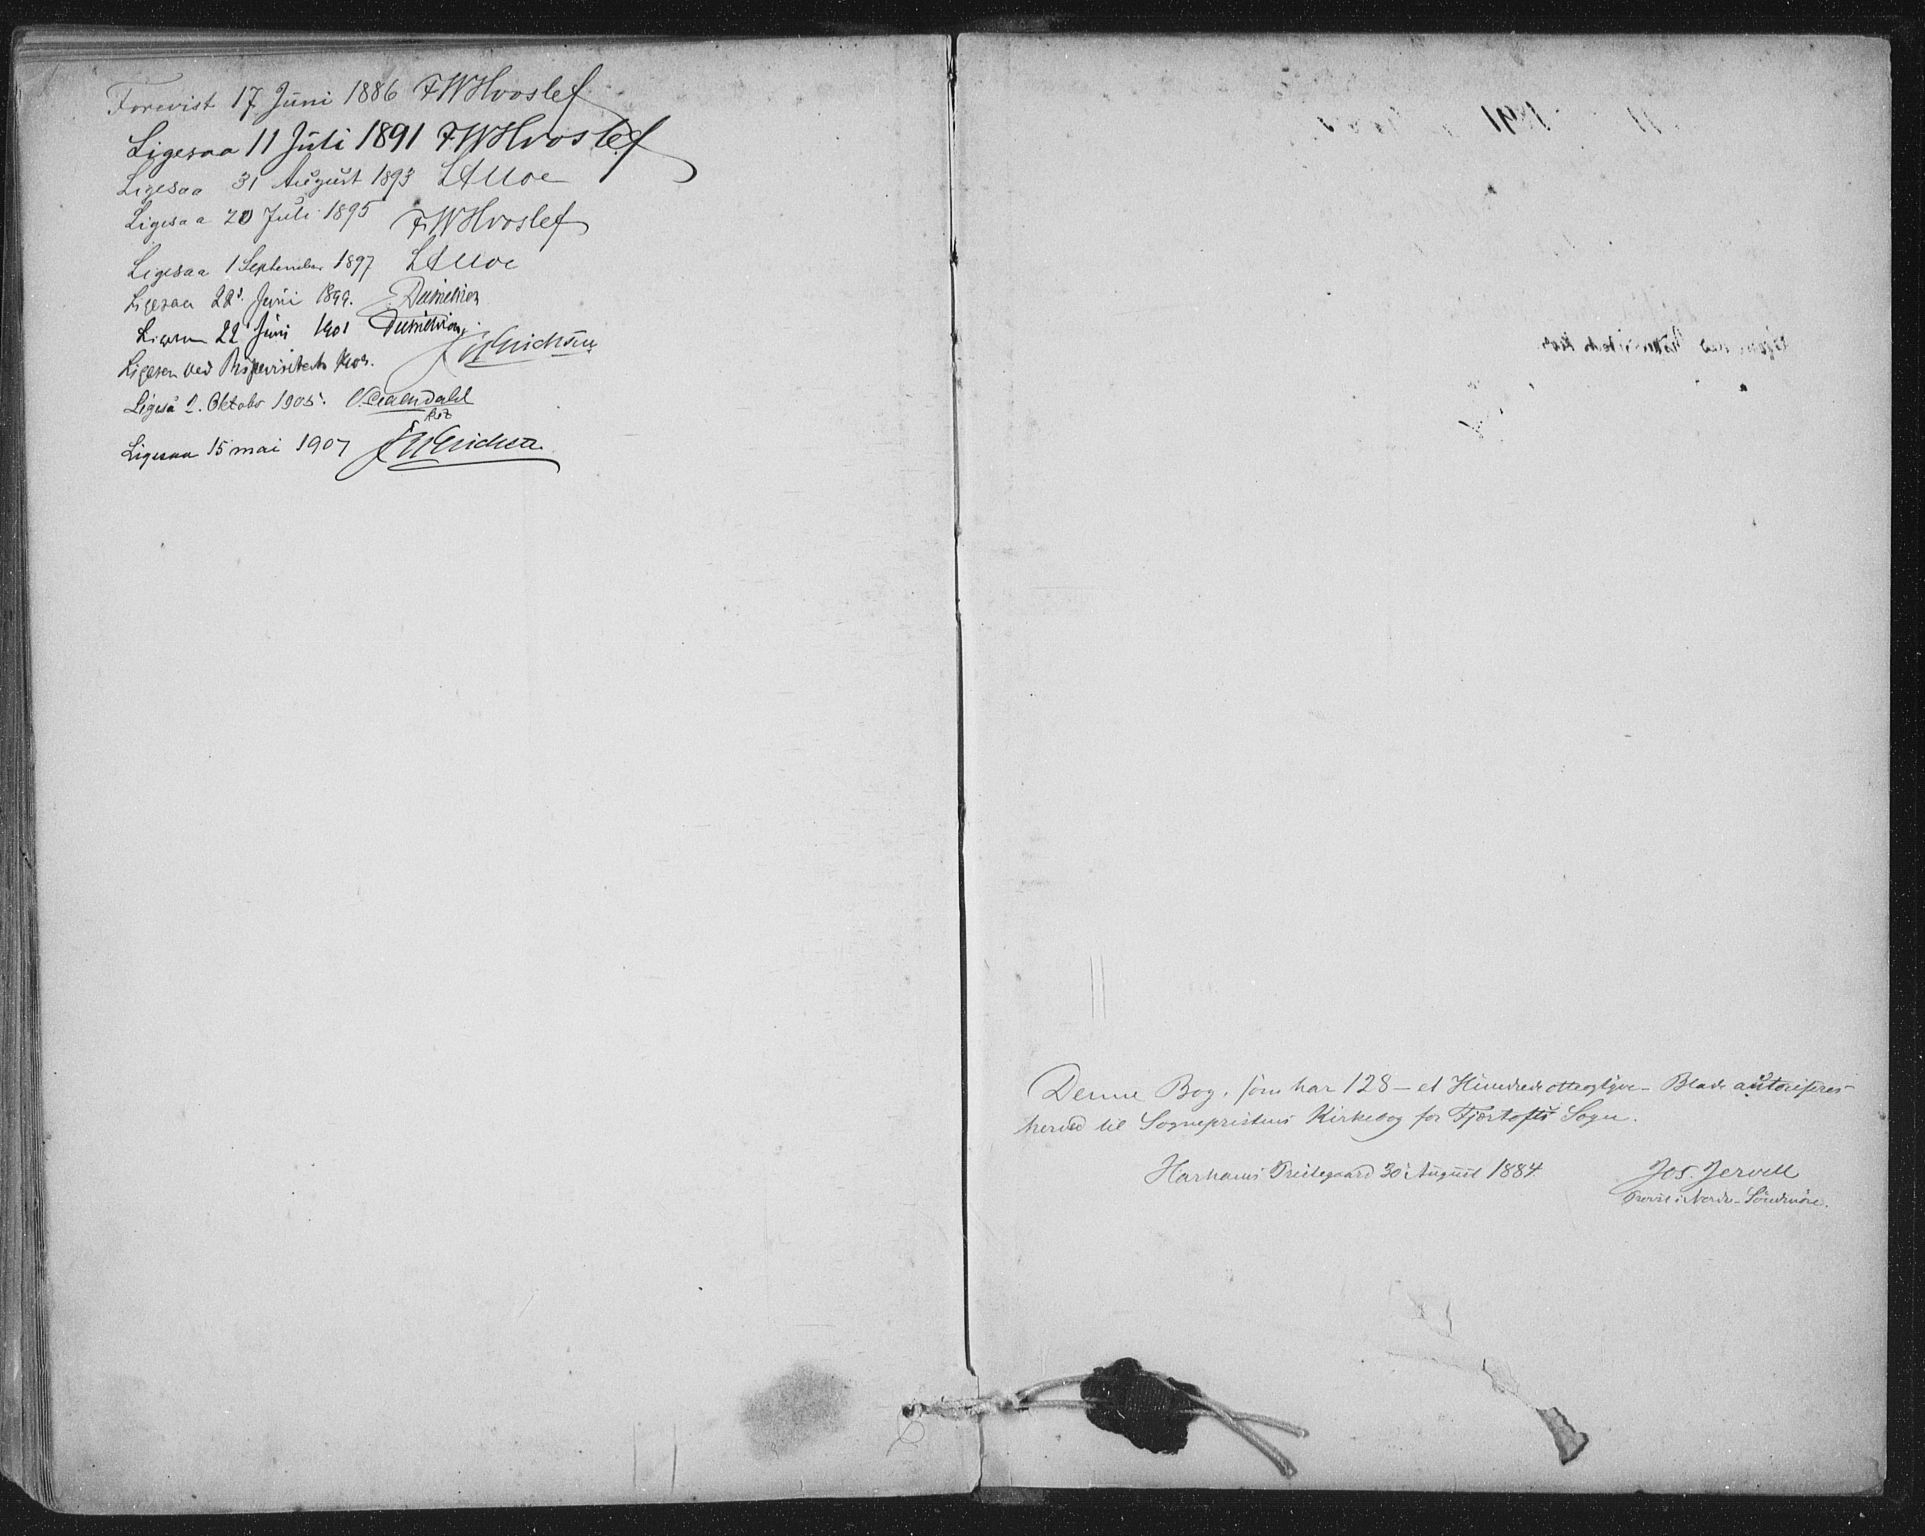 Forevist 17 Juni 1886 FWHvoslef
Ligesaa 11 Juli 1891 FWHvoslef
Ligesaa 31 August 1893 LAMoe
Ligesaa 20 Juli 1895 FWHvoslef
Ligesaa 1 September 1897 LAMoe
Ligesaa 22 Juni 1899.
Ligesaa 22 Juni 1901
Ligesaa ved Bispevisitats 1903. Erichsen
Ligeså 2. Oktober 1905.
Ligesaa 15 mai 1907 Erichsen
Denne Bog, som har 128 – et Hundrede otteogtyve – Blade autoriseres
herved til Sognepræstens Kirkebog for Fjørtofts Sogn.
Harhams Præstegaard 30 August 1884. Jos. Jervell
Provst i Nordre-Søndmøre.